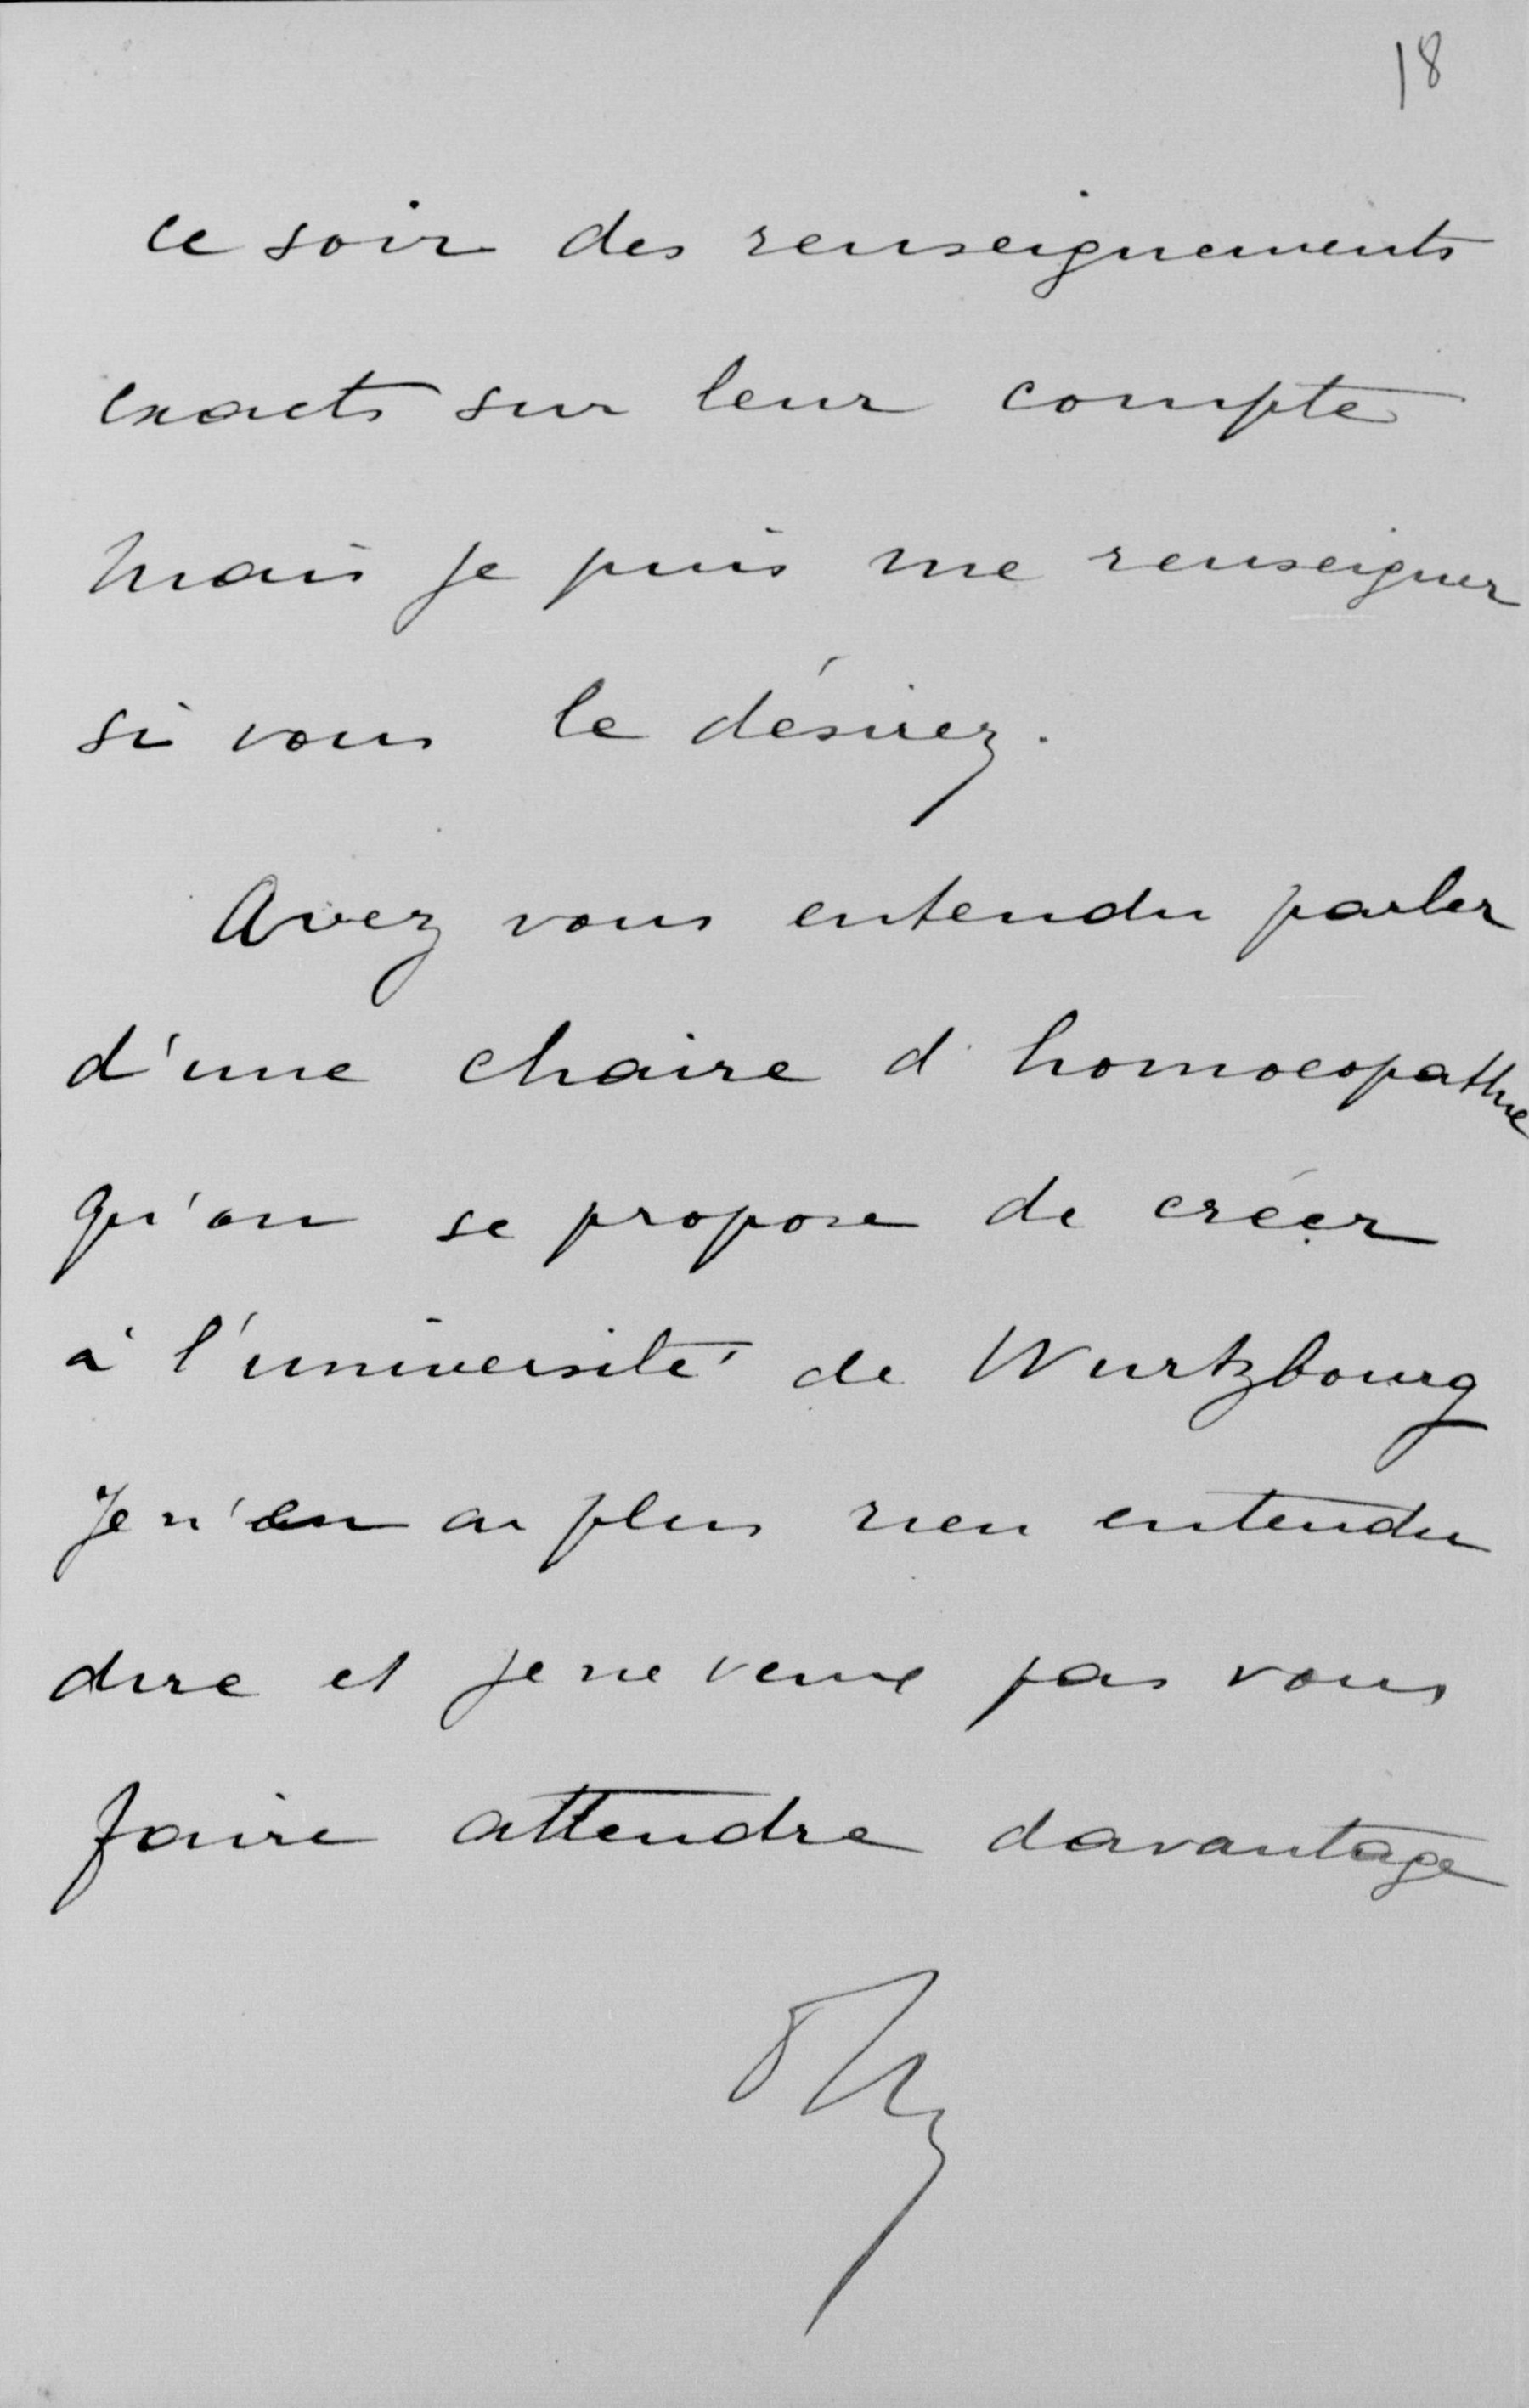 18
ce soir des renseignements
exacts sur leur compte
mais je puis me renseigner
si vous le désirez.
Avez vous entendu parler
d'une chaire d'homoeopathie
qu'on se propose de créer
à l'université de Wurtzbourg
Je n'en ai plus rien entendu
dire et je ne veux pas vous
faire attendre davantage